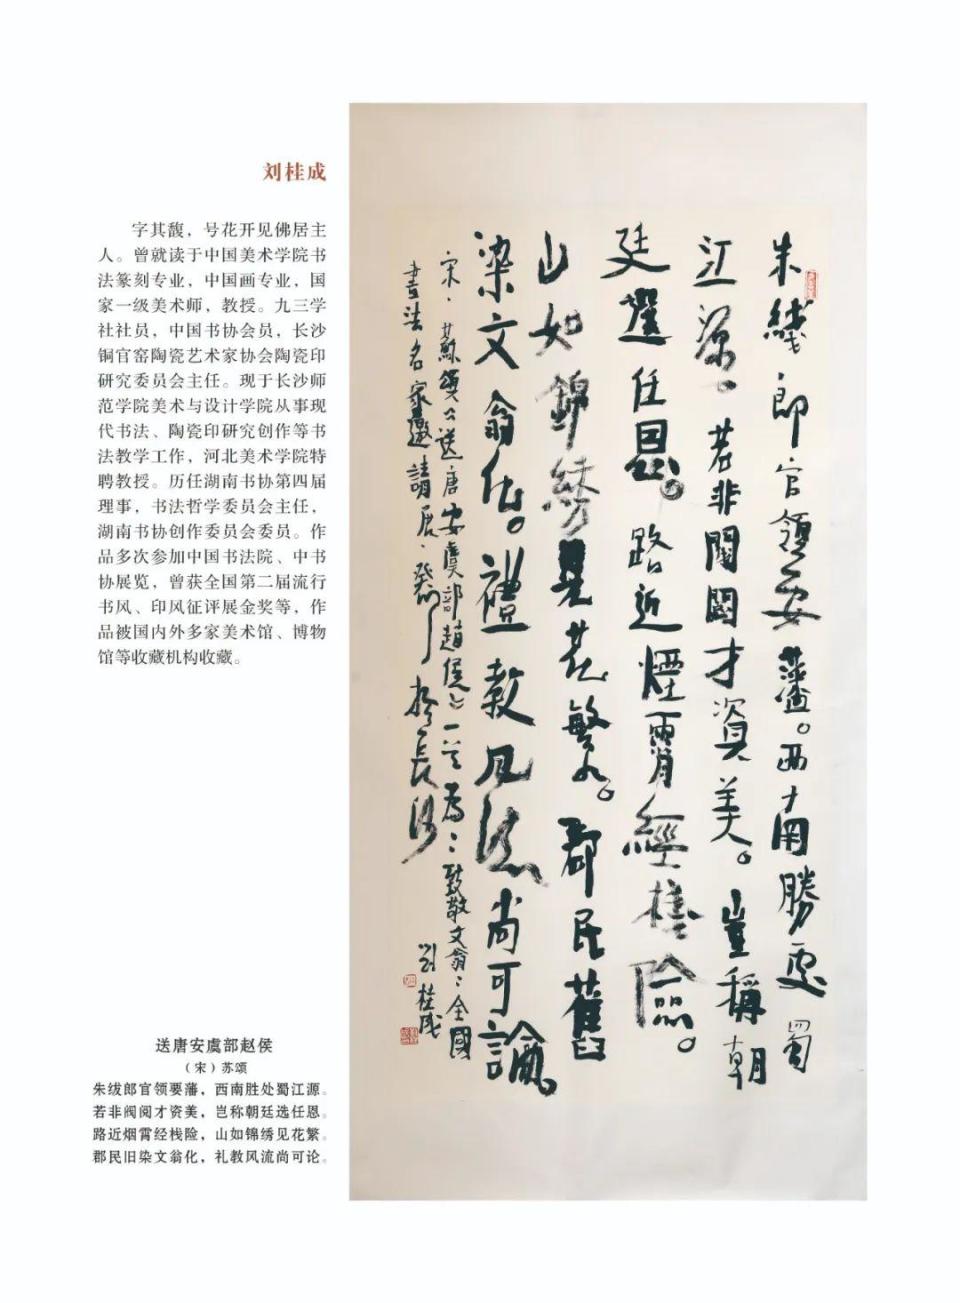 刘桂成
字其馥，号花开见佛居主
人。曾就读于中国美术学院书
法篆刻专业，中国画专业，国
家一级美术师，教授。九三学
社社员，中国书协会员，长沙
铜官窑陶瓷艺术家协会陶瓷印
研究委员会主任。现于长沙师
范学院美术与设计学院从事现
代书法、陶瓷印研究创作等书
法教学工作，河北美术学院特
聘教授。历任湖南书协第四届
理事，书法哲学委员会主任，
湖南书协创作委员会委员。作
品多次参加中国书法院、中书
协展览，曾获全国第二届流行
书风、印风征评展金奖等，作
品被国内外多家美术馆、博物
馆等收藏机构收藏。
送唐安虞部赵侯
（宋）苏颂
朱绂郎官领要藩，西南胜处蜀江源。
若非阀阅才资美，岂称朝廷选任恩。
路近烟霄经栈险，山如锦绣见花繁。
郡民旧染文翁化，礼教风流尚可论。
朱绂郎官領要藩。西南勝處蜀
江源。若非閥閱才資美。豈稱朝
廷選任恩。路近煙霄經棧險。
山如錦綉見花繁。郡民舊
染文翁化。禮教風流尚可論。
宋、蘇頌公送唐安虞部趙侯之一首為、致敬文翁、全國
書法名家邀請展、癸卯 於長沙 劉桂成